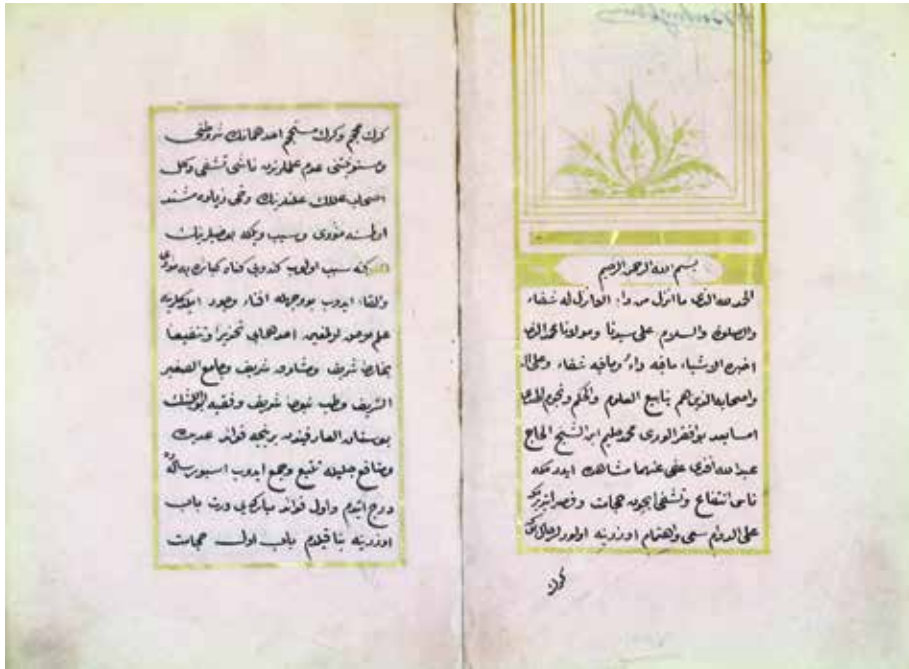 بسم الله الرحمن الرحيم
الحمد لله الذى ما انزل من داء الا انزل له شفاء
والصلوة والسلام على سيدنا ومولانا محمد الذى
اخبره الاشياء ما فيه داء وما فيه شفاء وعلى اله
واصحابه الذين هم ينابيع العلوم والحكم ونجوم
اما بعد بو افقر الورى محمد عليم ابن الشيخ الحاج
عبد الله افندى عفى عنهما مشاهده ايدرمكه
ناس انتفاع وتشفى ايچون حجامت وفصد
على الدوام سعى واهتمام اوزرينه اولورلر
كرك
كرك محجم وكرك مستحجم احدهمانك شروطنى
عدم علملرندن ناشى تشفى وكل
اصحاب علل علتلرينك دخى زياده مشتد
اولمسنه مؤدى وسبب وبلكه بعضيلرينك
سبب اولوب كندويى كناه كبائره
والقاء ايدوب بو وجهله افناء وجود ايلدكلرينه
علم اولديغمدن احد هابى تحريرا وتنقيحا
بخارئ شريف ومشارق شريف وجامع الصغير
الشريف وطب نبوئ شريف وفقيه ابو الليثك
بوستان العارفيندن برنيجه فوائد عديده
ومنافع جليله تتبع وجمع ايدوب اشبو رساله ده
درج ايتدم واول فوائد مباركه يى درت باب
اوزرينه بنا قيلدم باب اول حجامت